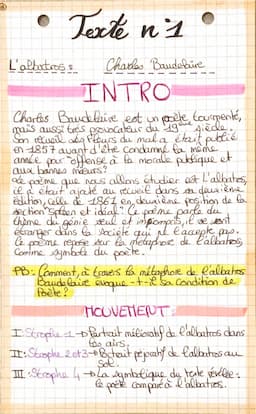 Texte n°1
L'albatros : Charles Baudelaire
INTRO
Charles Baudelaire est un poète tourmenté,
mais aussi très provocateur du 19ème siècle.
Son recueil les fleurs du mal a était publié
en 1857 avant d'être condamné la même
année pour "offense à la morale publique et
aux bonnes mœurs".
Le poème que nous allons étudier est L'albatros,
il a était ajouté au recueil dans sa deuxième
édition, celle de 1861 en deuxième position de la
section "spleen et idéal". Ce poème parle du
thème du génie seul et incompris, il se sent
étranger dans la société qui ne l'accepte pas.
Le poème repose sur la métaphore de l'albatros,
comme symbole du poète.
PB : Comment, à travers la métaphore de l'albatros
Baudelaire évoque-t-il sa condition de
Poète ?
MOUVEMENT :
I : Strophe 1 → Portrait mélioratif de l'albatros dans
les airs.
II : Strophe 2 et 3 → Portrait péjoratif de l'albatros au
sol.
III : Strophe 4 → La symbolique du texte révélée :
le poète comparé à l'albatros.